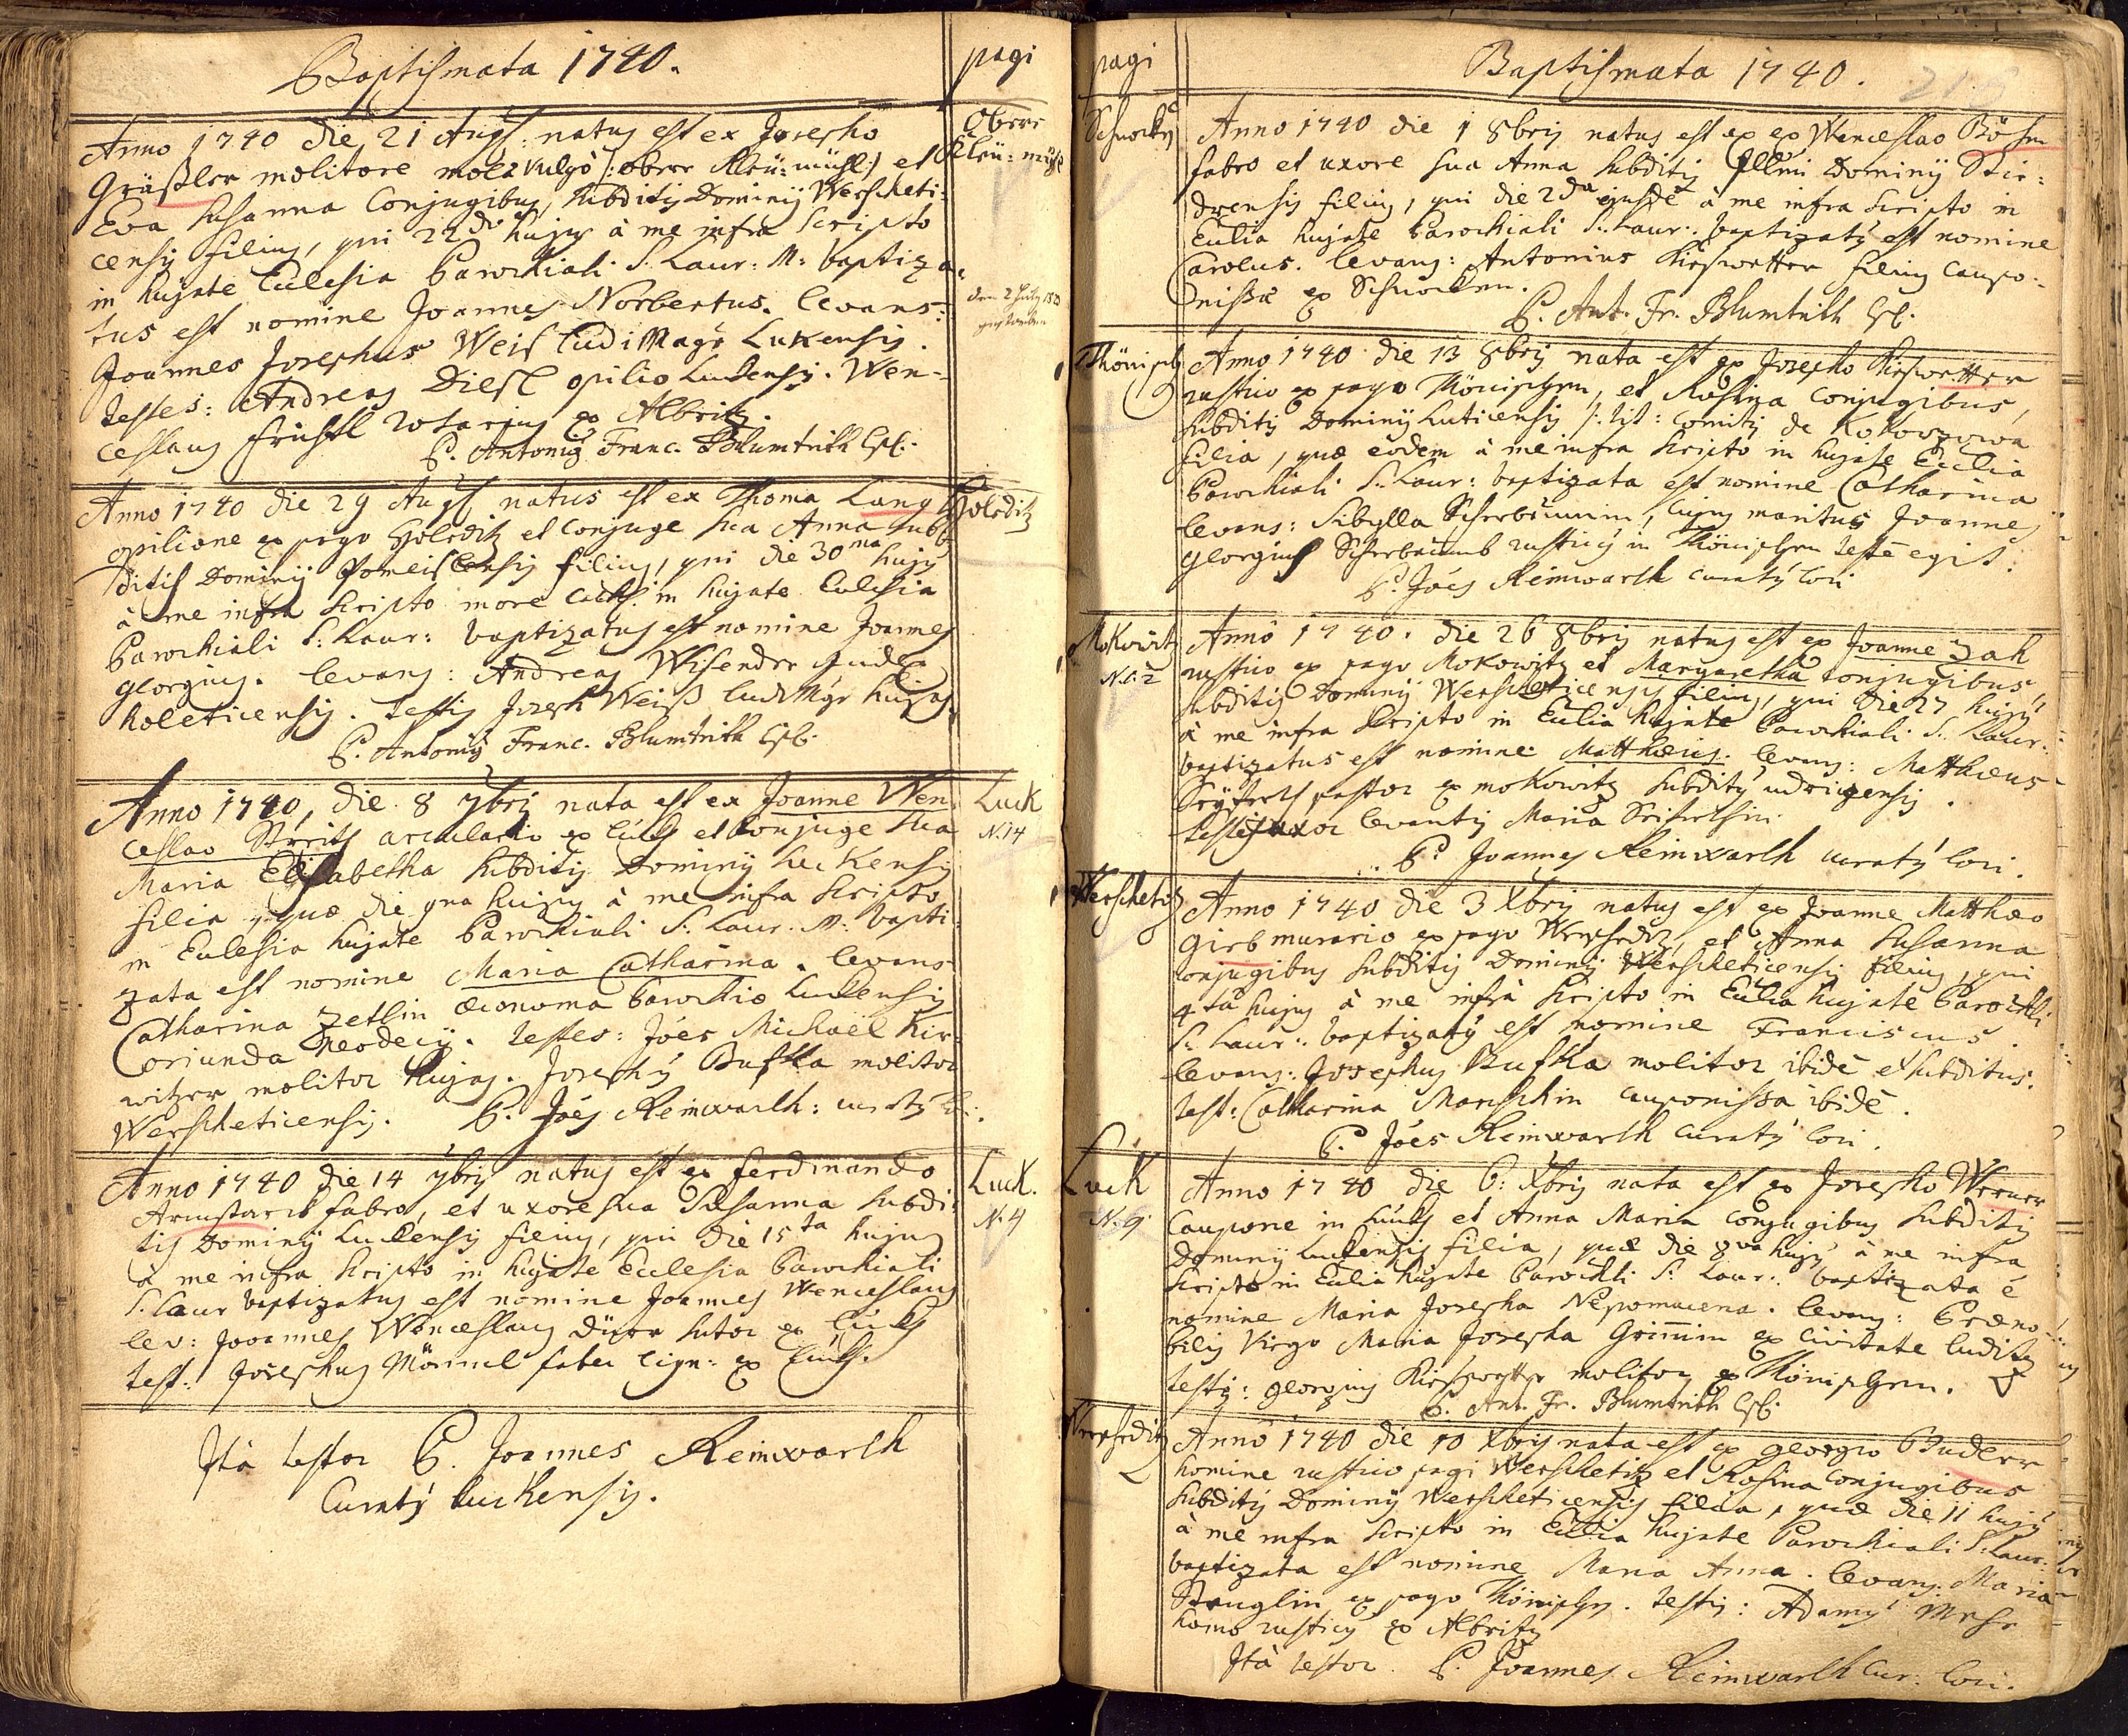 Baptismata 1740.
pagi
Obere
Kleü: mühl
Anno 1740 die 21 Augs: natus est ex Josepho
Gräßler molitore mola vulgo /: obere Kleü=mühl :/ et
Eva Susanna Conjugibus, subditis Dominÿ Wersheti-
censis filius, qui 22do hujus à me infra scripto
in hujate Eclesia Parochiali S. Laur: M: baptiza-
tus est nomine Joannes Norbertus. levans:
Joannes Josephus Weis ludi Magr Lukensis.
testes: Andreas Diesl opilio Lukensis. Wen-
ceslaus Frühstl rotarius ex Albritz.
P. Antonius Franc. Blumtritt Cpl.
gestorben
Holeditz
Anno 1740 die 29 Augs natus est ex Thoma Lang
opilione ex pago Holeditz et Conjuge sua Anna sub-
ditis Dominÿ Pomeislensis filius, qui die 30ma hujus
à me infra scripto more cath. in hujate Eclesia
Parochiali S: Laur: baptizatus est nomine Joannes
Georgius. levans: Andreas Wisender Judex
holeticensis. testis Joseph Weiß ludi Mgr hujas.
P. Antonius Franc. Blumtritt Cpl.
Luck
N. 14
Anno 1740, die 8 7bris nata est ex Joanne Wen-
ceslao Streits arculario ex Luck et Conjuge sua
Maria Elisabetha subditis Dominÿ Luckensis
filia, quæ die 9na hujus à me infra scripto
in Eclesia hujate Parochiali S: Laur. M: bapti-
zata est nomine Maria Catharina. levans
Catharina Zettlin œconoma Parochiæ Luckensis
oriunda Neodecÿ. testes: Jóes Michaël Kir-
witzer molitor hujas. Josephus Bufka molitor
Wersheticensis. P. Jóes Reinwarth: curatus loci.
Luck.
N. 4
Anno 1740 die 14 7bris natus est ex Ferdinando
fabro, et uxore sua Susanna subdi-
tis Dominÿ Luckensis filius, qui die 15ta hujus
à me infra scripto in hujate Ecclesia Parochiali
S. Laur baptizatus est nomine Joannes Wenceslaus
lev: Joannes Wenceslaus Dürr sutor ex Luck
test: Josephus Mörnel faber lign: ex Luck.
Ità testor P. Joannes Reinwarth
Curatus luckensis.
pagi
Baptismata 1740.
Anno 1740 die 1 8bris natus est ex ex Wenceslao Böhm
fabro et uxore sua Anna subditis Illmi Dominÿ Stie-
drensis filius, qui die 2da ejusdē à me infra scripto in
Eclia hujate Parochiali S: Laur: baptizatus est nomine
Carolus. levans: Antonius Kieswetter filius Caupo-
nissæ ex
P. Ant. Fr. Blumtritt Cpl.
Anno 1740 die 13 8bris nata est ex Josepho Kieswetter
rustico ex pago et Rosina Conjugibus,
subditis Dominÿ Luticensis /: tit: comitis de Kokorzowa
filia, quæ eodem à me infra scripto in hujate Ecclia
Parochiali S: Laur: baptizata est nomine Catharina
levans: Sibylla Scherbäumin, cujus maritus Joannes
Georgius Scherbäumb rusticus in testē egit.
P. Jóes Reinwarth curatus loci
Mokowitz
N.C. 2
Anno 1740. die 26 8bris natus est ex Joanne Zah
rustico ex pago Mokowitz et Margaretha conjugibus,
subditis Dominÿ Wersheticensis filius, qui die 27 hujus
à me infra scripto in Eclia hujate Parochiali S. Laur:
baptizatus est nomine Matthæus. levans: Matthæus
pastor ex Mokowitz subditus udricensis.
testis uxor levantis Maria
P. Joannes Reinwarth curatus loci.
Werschetitz
Anno 1740 die 3 Xbris natus est ex Joanne Matthæo
Gieb murario ex pago et Anna Susanna
conjugibus subditis Dominÿ Wersheticensis filius, qui
4ta hujus à me infra scripto in Eclia hujate Parochli
S. Laur: baptizatus est nomine Franciscus.
levans: Josephus Bufka molitor ibidē et subditus.
test: Catharina Manschin cauponissa ibidē.
P. Jóes Reinwarth curatus loci.
Luck
N. 9.
Anno 1740 die 6: Xbris nata est ex Josepho Werner
Caupone in Luck et Anna Maria conjugibus subditis
Dominÿ Lukensis filia, quæ die 8va hujus à me infra
scripto in Eclia hujate Parochli S: Laur: baptizata ē
nomine Maria Josepha Nepomucena. levans: Præno-
bilis Virgo Maria Josepha Grimmin ex civitate luditz
testis: Georgius Kieswetter molitor ex
P. Ant. Fr. Blumtritt Cpl.
Anno 1740 die 10 Xbris nata est ex Georgio Buderr
homine rustico pagi Werschetitz et Rosina conjugibus
subditis Dominÿ Wersheticensis filia, quæ die 11 hujus
à me infra scripto in Ecclia hujate Parochiali S: Laur:
baptizata est nomine Maria Anna. levans. Maria
Stenglin ex pago testis: Adamus
homo rusticus ex Albritz
Ità testor P. Joannes Reinwarth Cur: loci.